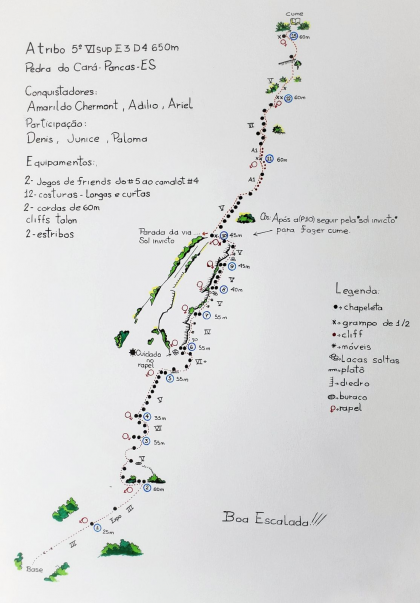 Cume
13 60m
Atribo 5º VIsup E3 D4 650m
Pedra do Cará-Pancas-ES
Conquistadores:
Amarildo Chermont, Adilio, Ariel
Participação:
Denis, Junice, Paloma
Equipamentos:
2- Jogos de friends do #5 ao camalot #4
12-costuras - Longas e curtas
2- cordas de 60m
cliffs talon
2-estribos
V
12 60m
VI
A1
11 60m
A1
V
Obs: Após a(P10) seguir pela "sol invicto"
para fazer cume.
Parada da via
Sol invicto
10 45m
9 45m
8 40m
7 55m
IV
Cuidado
no
rapel
6 55m
VI
5 55m
V
4 35m
VI
3 55m
V
2 60m
III
Expo
1 25m
III
Base
Legenda:
chapeleta
x grampo de 1/2
cliff
móveis
Lacas soltas
platô
diedro
buraco
rapel
Boa Escalada!!!